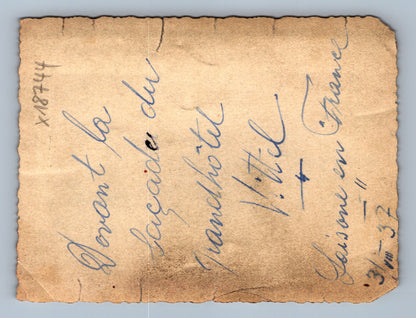 Devant la
façade du
grandhôtel
Vittel
Saisone en France
3/VIII 37
x18744